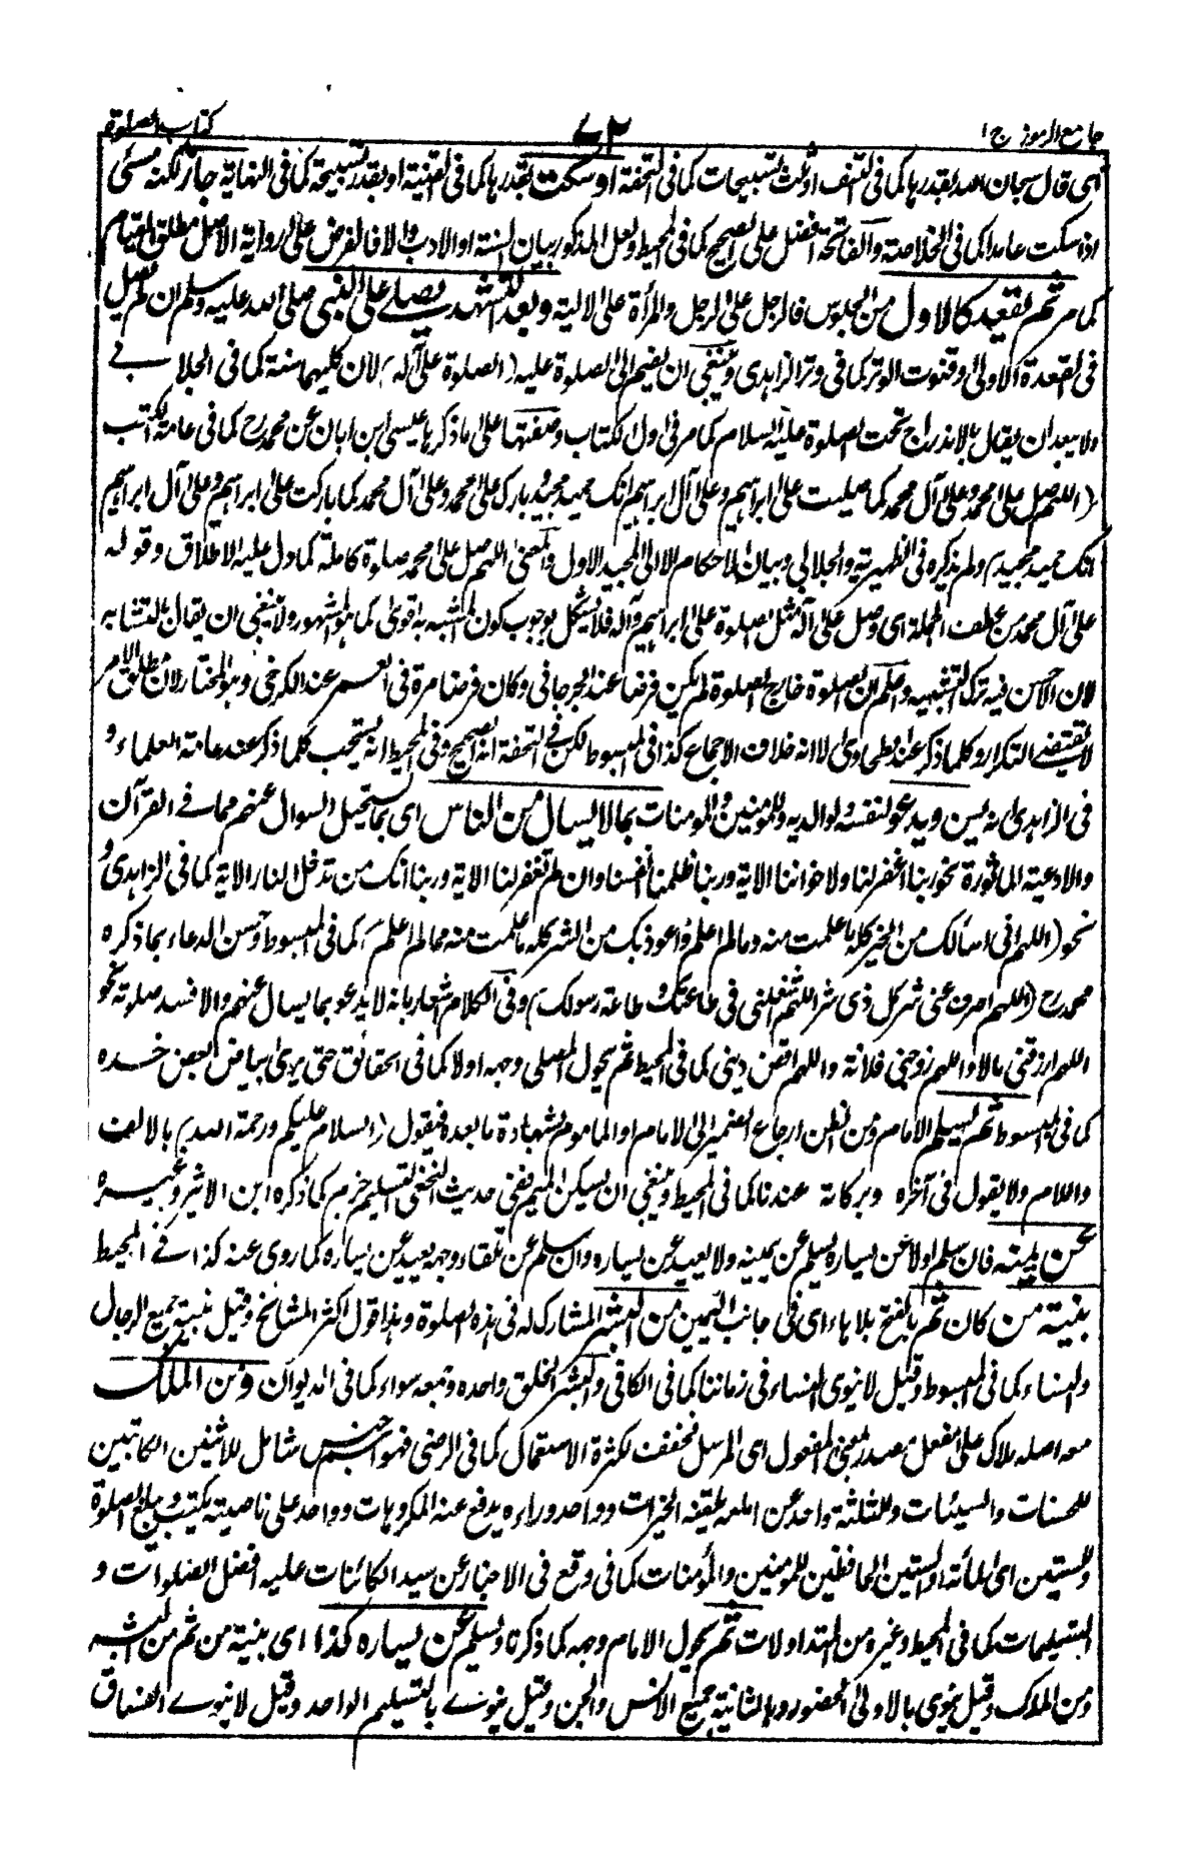 جامع الرموز ج ١
٧٢
كتاب الصلوة
اى قال سبحان الله بقدرها كما فى النتف او ثلث تسبيحات كما فى التحفة او سكت بقدرها كما فى القنية او بقدر تسبيحة كما فى النهاية جاز لكنه مسئ
اذا سكت عامدا كما فى الخلاصة والفاتحة افضل على الصحيح كما فى المحيط ولعل المذكور بيان السنة او الادب والا فالفرض على رواية الاصل مطلق القيام
كما مر ثم يقعد كالاول من الجلوس فالرجل على الرجل والمرأة على الالية وبعد التشهد يصلى على النبى صلى الله عليه وسلم ان لم يصل
فى القعدة الاولى وقنوت الوتر كما فى وتر الزاهدى وينبغى ان يضم الى الصلوة عليه (الصلوة على آله) لان كليهما سنة كما فى الجلابى
ولا يبعد ان يقال بالاندراج تحت الصلوة عليه السلام كما مر فى اول الكتاب وصفتها على ما ذكرها عيسى ابن ابان عن محمد رح كما فى عامة الكتب
(اللهم صل على محمد وعلى آل محمد كما صليت على ابراهيم وعلى آل ابراهيم انك حميد مجيد وبارك على محمد وعلى آل محمد كما باركت على ابراهيم وعلى آل ابراهيم
انك حميد مجيد) ولم يذكره فى الظهيرية والجلابى وبيان الاحكام الا الى المجيد الاول والمعنى اللهم صل على محمد صلوة كاملة كما دل عليه الاطلاق وقوله
على آل محمد من عطف الجملة اى وصل على آله مثل الصلوة على ابراهيم وآله فلا يشكل بوجوب كون المشبه به اقوى كما هو المشهور ولا ينبغى ان يقال بالتشابه
لان الاحسن فيه ترك التشبيه واعلم ان الصلوة خارج الصلوة لم يكن فرضا عند الجرجانى وكان فرضا مرة فى العمر عند الكرخى وهو المختار لان مطلق الامر
لا يقتضى التكرار وكلما ذكر عند الطحاوى الا انه خلاف الاجماع كذا فى المبسوط لكن فى التحفة انه الصحيح وفى المحيط انه يستحب كلما ذكر عند عامة العلماء و
فى الزاهدى انه يسن ويدعو لنفسه ولوالديه وللمؤمنين والمؤمنات بما لا يسال من الناس اى بما يستحيل السوال عنهم مما فى القرآن
والادعية الماثورة نحو ربنا اغفر لنا ولاخواننا الاية وربنا ظلمنا انفسنا وان لم تغفر لنا الاية وربنا انك من تدخل النار الاية كما فى الزاهدى و
نحو (اللهم انى اسألك من الخير كله ما علمت منه وما لم اعلم واعوذ بك من الشر كله ما علمت منه وما لم اعلم) كما فى المبسوط وحسن الدعاء بما ذكره
محمد رح (اللهم اصرف عنى شر كل ذى شر اللهم اشغلنى فى طاعتك وطاعة رسولك) وفى الكلام اشعار بانه لا يدعو بما يسال عنهم والا فسد صلوته نحو
اللهم ارزقنى مالا واللهم زوجنى فلانة واللهم اقض دينى كما فى المحيط ثم يحول المصلى وجهه اولا كما فى الحقائق حتى يرى بياض بعض خده
كما فى المبسوط ثم يسلم الامام ومن الظن ارجاع الضمير الى الامام او الماموم لشهادة ما بعده فيقول (السلام عليكم ورحمة الله) بالالف
واللام ولا يقول فى آخره وبركاته عندنا كما فى المحيط وينبغى ان يسكن الميم ففى حديث النخعى التسليم جزم كما ذكره ابن الاثير وغيره
عن يمينه فان سلم اولا عن يساره يسلم عن يمينه ولا يعيد عن يساره وان سلم عن تلقاء وجهه يعيد عن يساره كما روى عنه كذا فى المحيط
بنية من كان ثم بالفتح بلا هاء اى فى جانب اليمين من البشر المشارك له فى هذه الصلوة وهذا قول اكثر المشائخ وقيل بنية جميع الرجال
والنساء كما فى المبسوط وقيل لا ينوى النساء فى زماننا كما فى الكافى والبشر الخلق واحده وجمعه سواء كما فى الديوان ومن الملك
معه اصله ملاك على مفعل مصدر بمعنى المفعول اى المرسل فخففت لكثرة الاستعمال كما فى الرضى فهو اسم جنس شامل للاثنين الكاتبين
للحسنات والسيئات وللثلثة واحد عن امامه يلقنه الخيرات وواحد وراءه يدفع عنه المكروهات وواحد على ناصيته يكتب ويبلغ الصلوة
وللستين اى المائة او الستين الحافظين للمؤمنين والمؤمنات كما فى وقع فى الاخبار عن سيد الكائنات عليه افضل الصلوات و
التسليمات كما فى المحيط وغيره من المتداولات ثم يحول الامام وجهه كما ذكرنا ويسلم عن يساره كذا اى بنية من ثم من البشر
ومن الملك وقيل ينوى بالاولى الحضور وبالثانية جميع الانس والجن وقيل ينوى بالتسليم الواحد وقيل لا ينوى الفساق